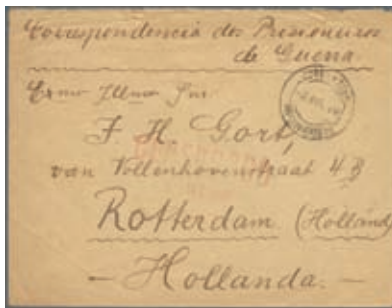 Correspondencia dos Prisioneiros
de Guerra
Exmo Illmo Snr
F. H. Gort,
van Vollenhovenstraat 4B
Rotterdam (Holland)
— Hollanda. —